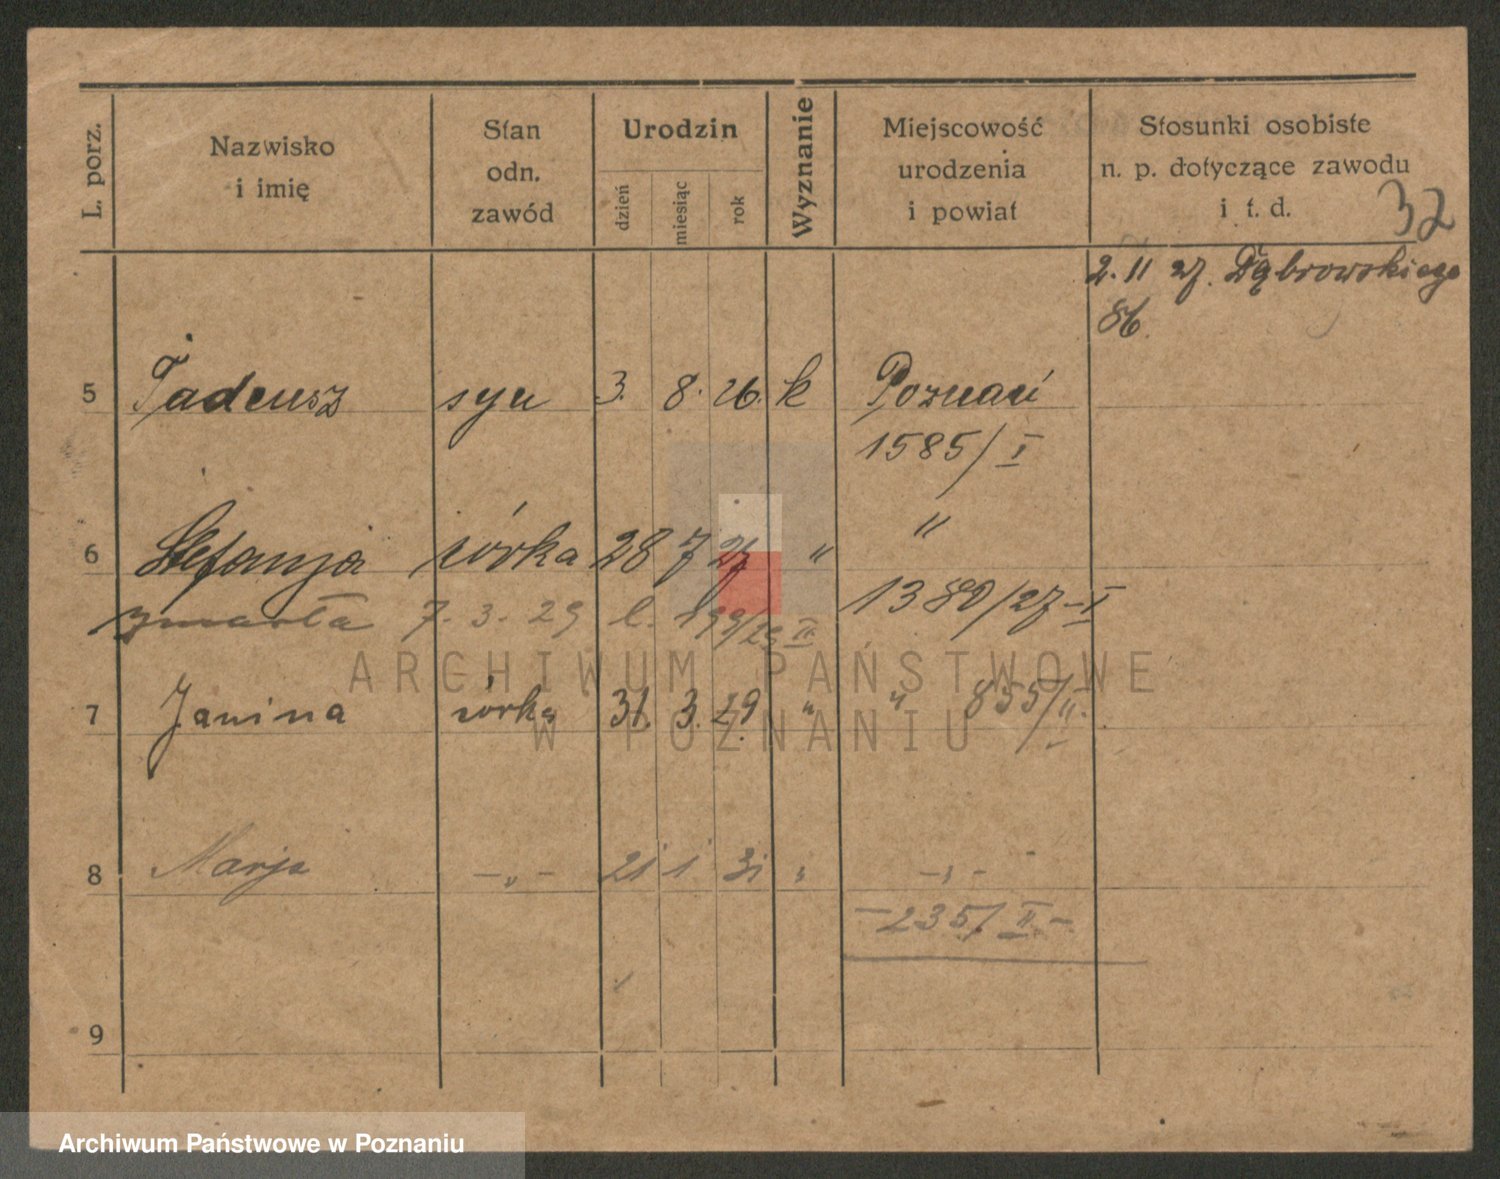 L. porz.
Nazwisko
i imię
Stan
odn.
zawód
Urodzin
dzień
miesiąc
rok
Wyznanie
Miejscowość
urodzenia
i powiat
Stosunki osobiste
n. p. dotyczące zawodu
i t. d.
32
2. 11 27. Dąbrowskiego
86.
5 Tadeusz syn 3. 8. 26. k Poznań
1585/I
6 Stefanja córka 28 7 27 " "
1380/27-II
zmarła 7. 3. 29 l. 199/29 II
7 Janina córka 31. 3. 29 " " 855/II.
8 Marja -"- 21 1 31 " -"-
-235/II.-
9
ARCHIWUM PAŃSTWOWE
W POZNANIU
Archiwum Państwowe w Poznaniu